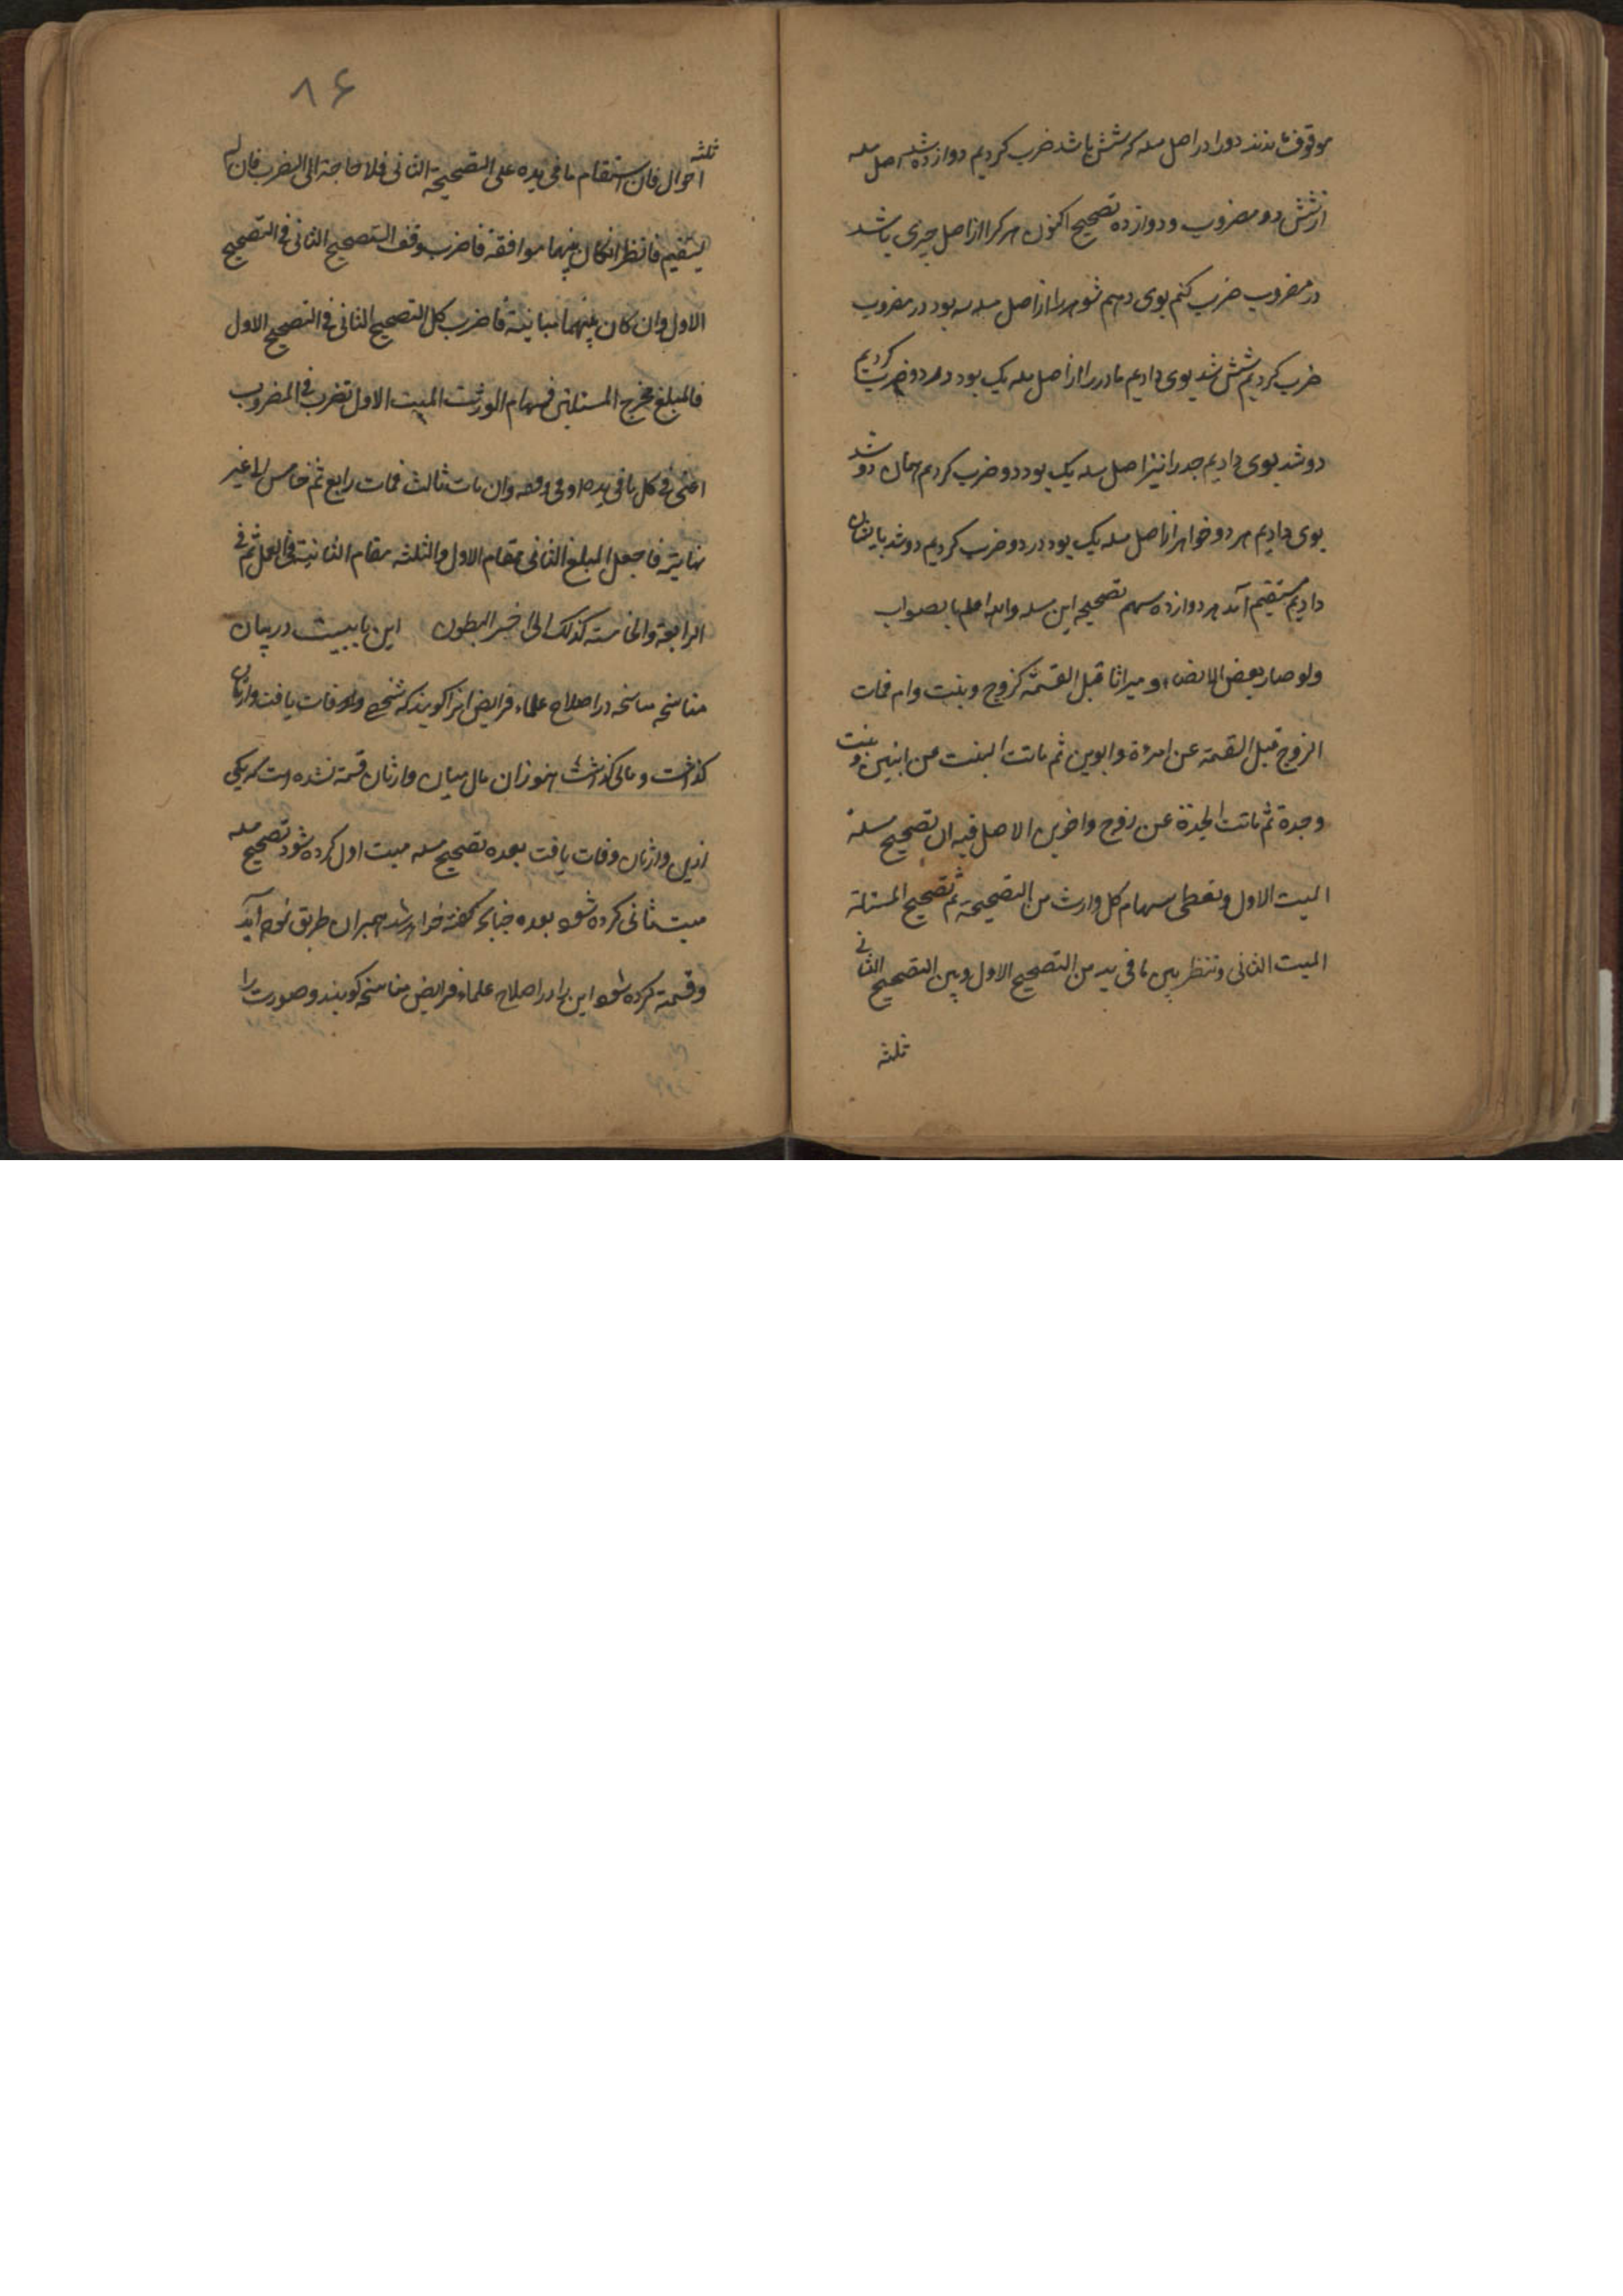 موقوف ماندند دو را در اصل مسله که شش باشد ضرب کردیم دوازده شد اصل مسله
از شش دو مضروب و دوازده تصحیح اکنون هر کرا از اصل چیزی باشد
در مضروب ضرب کنم بوی دهم شوهر را از اصل مسله سه بود در مضروب
ضرب کردیم شش شد بوی دادیم مادر را از اصل مسله یک بود در دو ضرب کردیم
دو شد بوی دادیم جد را نیز اصل مسله یک بود دو ضرب کردیم همان دو شد
بوی دادیم هر دو خواهر از اصل مسله یک بود در دو ضرب کردیم دو شد بایشان
دادیم مستقیم آمد هر دوازده سهم تصحیح این مسله والله اعلم بالصواب
ولو صار بعض الانصباء میراثا قبل القسمة کزوج و بنت وام فمات
الزوج قبل القسمة عن امرءة وابوین ثم ماتت البنت عن ابنین وبنت
وجدة ثم ماتت الجدة عن زوج واخوین الاصل فیه ان تصحیح مسلة
المیت الاول وتعطی سهام کل وارث من التصحیحة ثم تصحیح المسئلة
المیت الثانی وتنظر بین ما فی ید من التصحیح الاول وبین التصحیح الثانی
ثلثة
۸۶
ثلثة
احوال فان استقام ما فی یده علی التصحیحة الثانی فلا حاجة الی الضرب فان لم
یستقیم فانظر انکان بینهما موافقة فاضرب وفق التصحیح الثانی فی التصحیح
الاول وان کان بینهما مباینة فاضرب کل التصحیح الثانی فی التصحیح الاول
فالمبلغ مخرج المسئلتین فسهام الورثت المیت الاول تضرب فی المضروب
اعنی فی کل ما فی یده او فی وفقه وان مات ثالث فمات رابع ثم خامس الی غیر
نهایته فاجعل المبلغ الثانی مقام الاول والثلثه مقام الثانیة فی العمل ثم فی
الرابعة والخامسته کذلک الی اخیر البطون این بابیست در بیان
مناسخه مناسخه در اصلاح علماء فرایض انرا کویند که شخصی وفات یافت وارثان
کذاشت و مالی کذاشت هنوز ان مال میان وارثان قسمة نشده است که یکی
ازین وارثان وفات یافت بعده تصحیح مسله میت اول کرده شود تصحیح مسله
میت ثانی کرده شود بعده چنانکه کفته خواهد شد همبران طریق نموده آید
وقسمة کرده شود این را در اصلاح علماء فرایض مناسخه کویند و صورت را